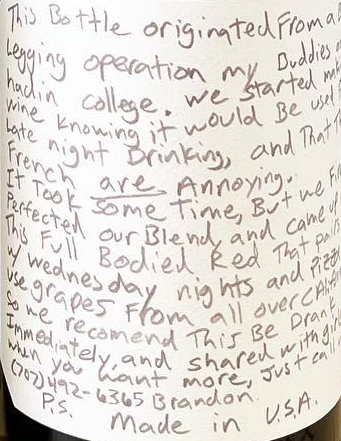 This Bottle originated From a
Legging operation my Buddies
had in college. We started
wine knowing it would Be used
Late night Drinking, and That
French are Annoying.
It Took some Time, But we
Perfected our Blend and came
This Full Bodied Red That pairs
w/ wednesday nights and Pizza
use grapes From all over
So we recomend This Be Drank
Immediately, and shared with
when you want more, Just call
(707)492-6365 Brandon.
P.S. Made in U.S.A.